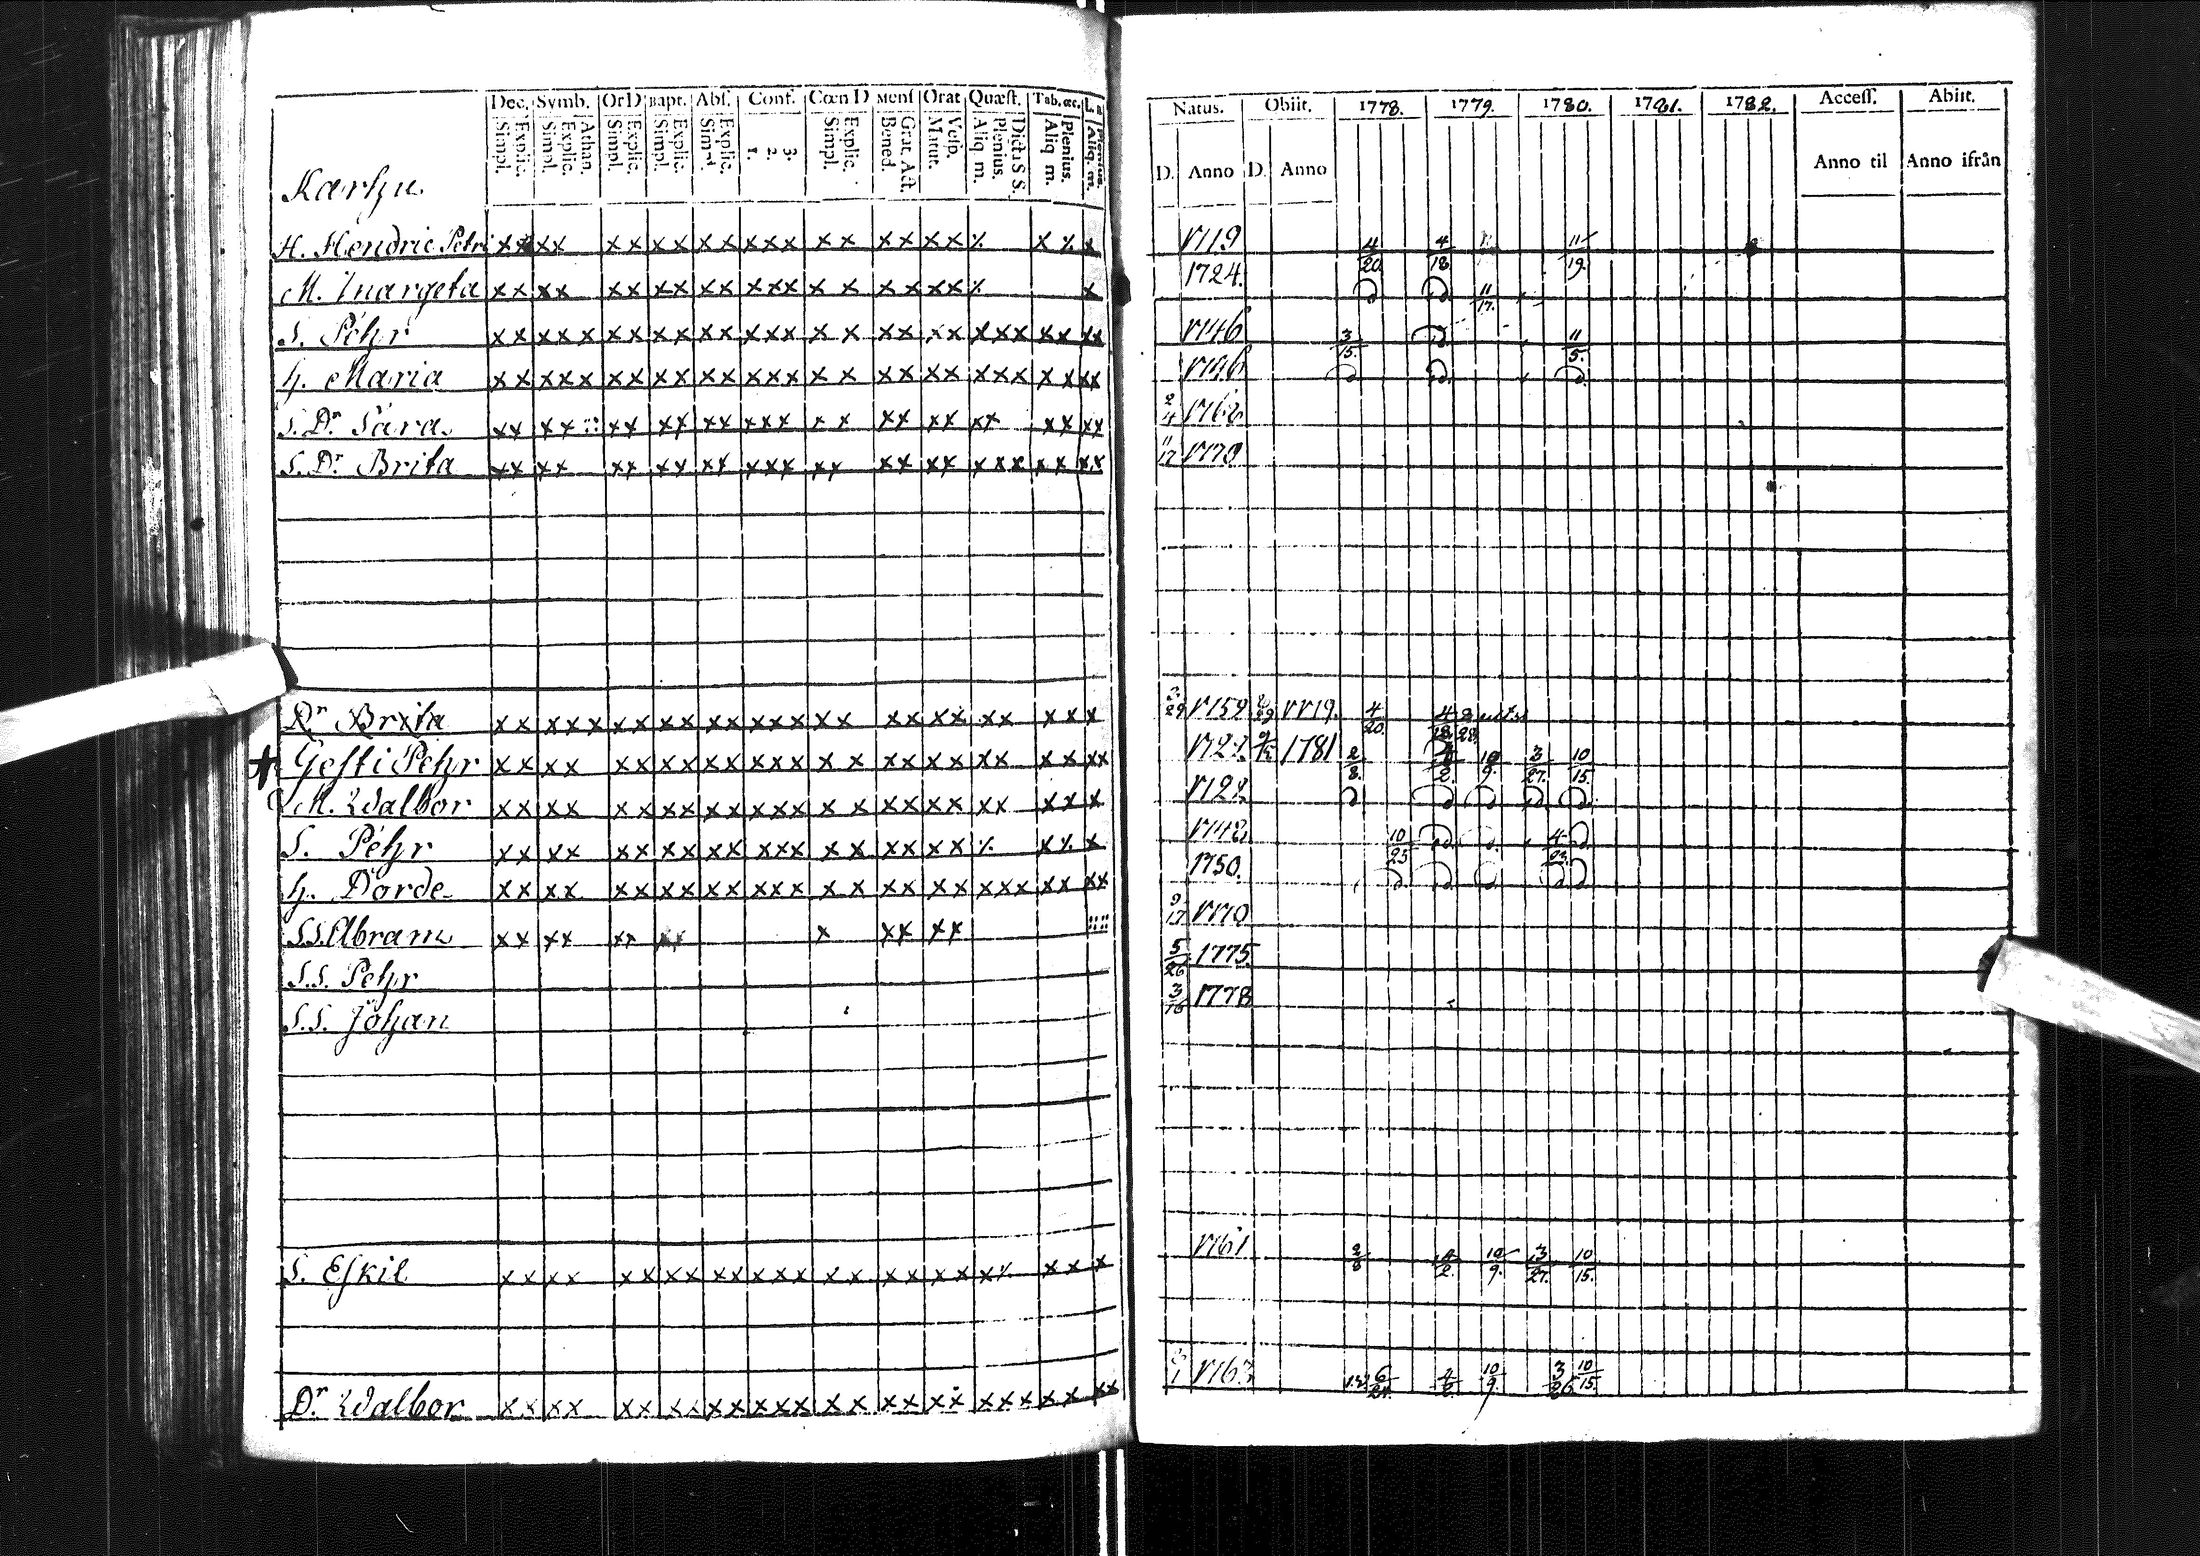 Dec. Symb. Or D Bapt. Abs. Conf. Cœn D Mens Orat Quæst. Tab. œc.
Simpl. Explic. Simpl. Explic. Athan. Simpl. Explic. Simpl. Explic. Simpl. Explic. 1. 2. 3. Simpl. Explic. Bened. Grat. Act. Matut. Vesp. Aliq m. Plenius. Dicta S S. Aliq m. Plenius. Aliq. m.
Karhu
H. Hendric Petri xx xx xx xx xx xxx xx xx xx
M. Margeta xx xx xx xx xx xxx x x xx xx x
S. Pehr xx xxx xx xx xx xxx x x xx xx xxx xx xx
h. Maria xx xxx xx xx xx xxx x x xx xx xxx x x xx
S. Dr Sara xx xx xx xx xx xxx x x xx xx xx xx xx
S. Dr Brita xx xx xx xx xx xxx xx xx xx xxx xx xx
Dr Brita xx xxx xx xx xx xxx xx xx xx xx xx x
+ Gesti Pehr xx xx xx xx xx xxx x x xx xx xx xx xx
M. Walbor xx xx xx xx xx xxx x x xx xx xx xx x
S. Pehr xx xx xx xx xx xxx x x xx xx
h. Dorde xx xx xx xx xx xxx x x xx xx xxx xx xx
S.S. Abram xx xx xx xx x xx xx
S.S. Pehr
S.S. Johan
S. Eskil xx xx xx xx xx xxx xx xx xx xx x
Dr. Walbor xx xx xx xx xx xxx x x xx xx xxx xx xx
Natus. Obiit. 1778. 1779. 1780. 1781. 1782. Access. Abiit.
D. Anno D. Anno Anno til Anno ifrån
1719 4/20 4/18 11/19.
1724. 11/17.
1746 3/15. 11/5.
1746
2/4
11/17 1770
1759 1779. 4/20. 4/18. 8/28
1781 2/8. 10/9. 3/27. 10/15.
10/25 4/23
1750.
9/17 1770
5/26 1775
3/16 1778
1761 2/8 4/2. 10/9. 3/27. 10/15.
1763 6/24. 4/2. 10/9. 3/26 10/15.